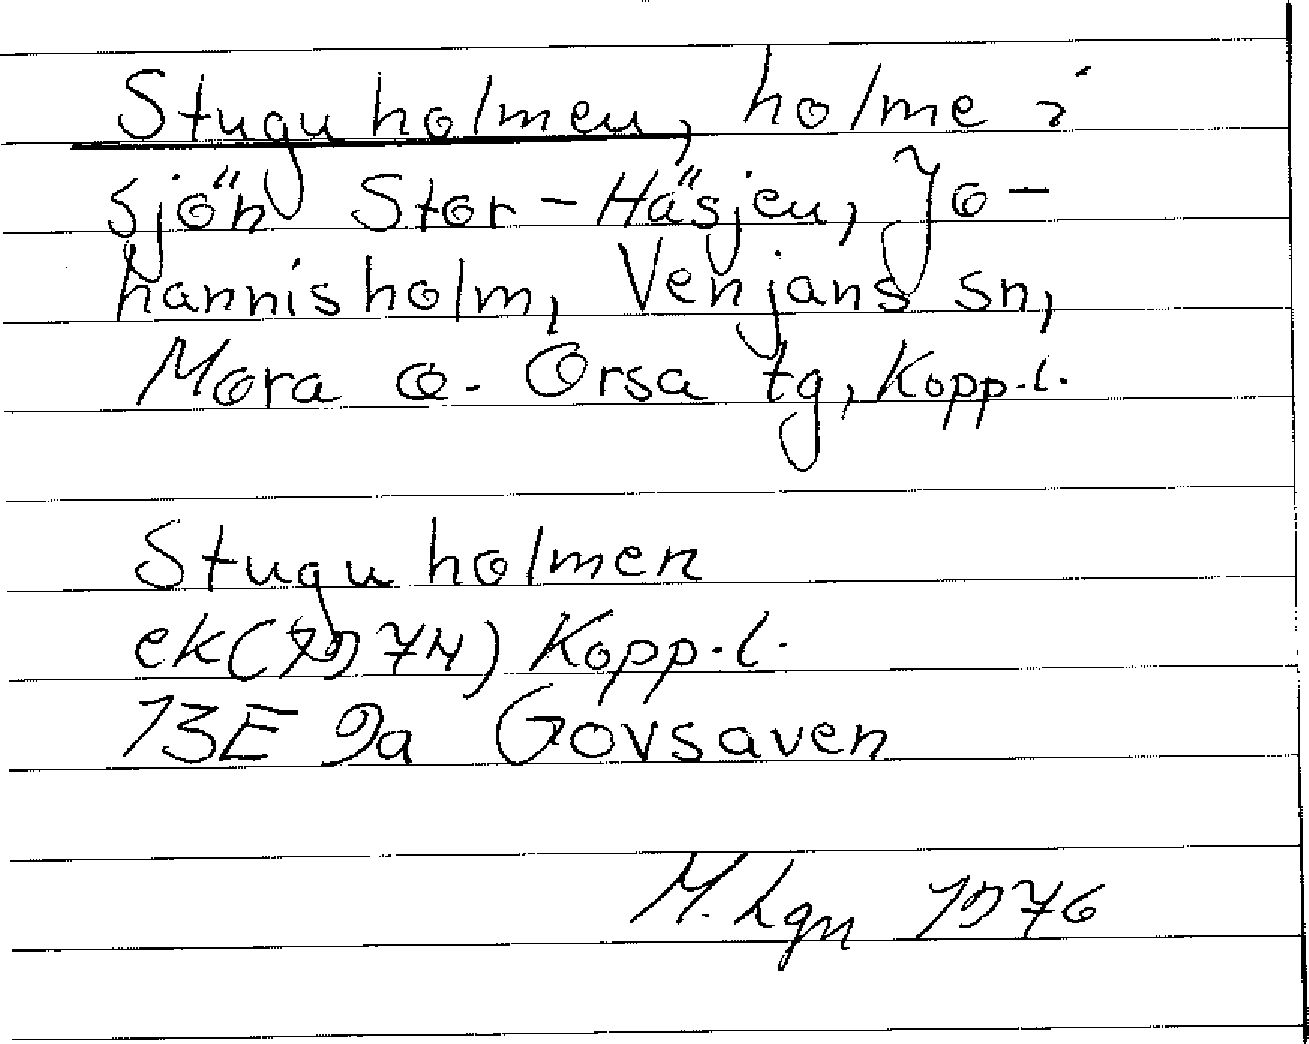 Stuguholmen, holme i
sjön Stor-Häsjen, Jo-
hannisholm, Venjans sn,
Mora o. Orsa tg, Kopp.l.
Stuguholmen
ek(1974) Kopp.l.
13E 9a Govsaven
M. Lgn 1976